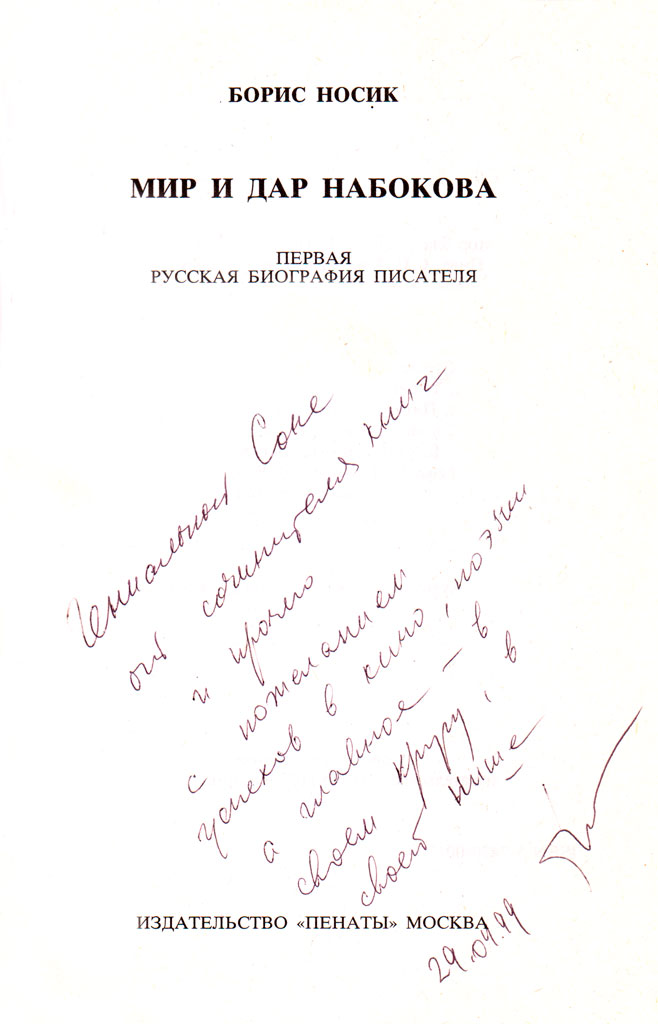 БОРИС НОСИК
МИР И ДАР НАБОКОВА
ПЕРВАЯ
РУССКАЯ БИОГРАФИЯ ПИСАТЕЛЯ
Гениальной Соне
от сочинителя книг
и прочего
с пожеланием
успехов в кино, поэзии
а главное – в
своем кругу, в
своей нише
29.04.99
ИЗДАТЕЛЬСТВО «ПЕНАТЫ» МОСКВА